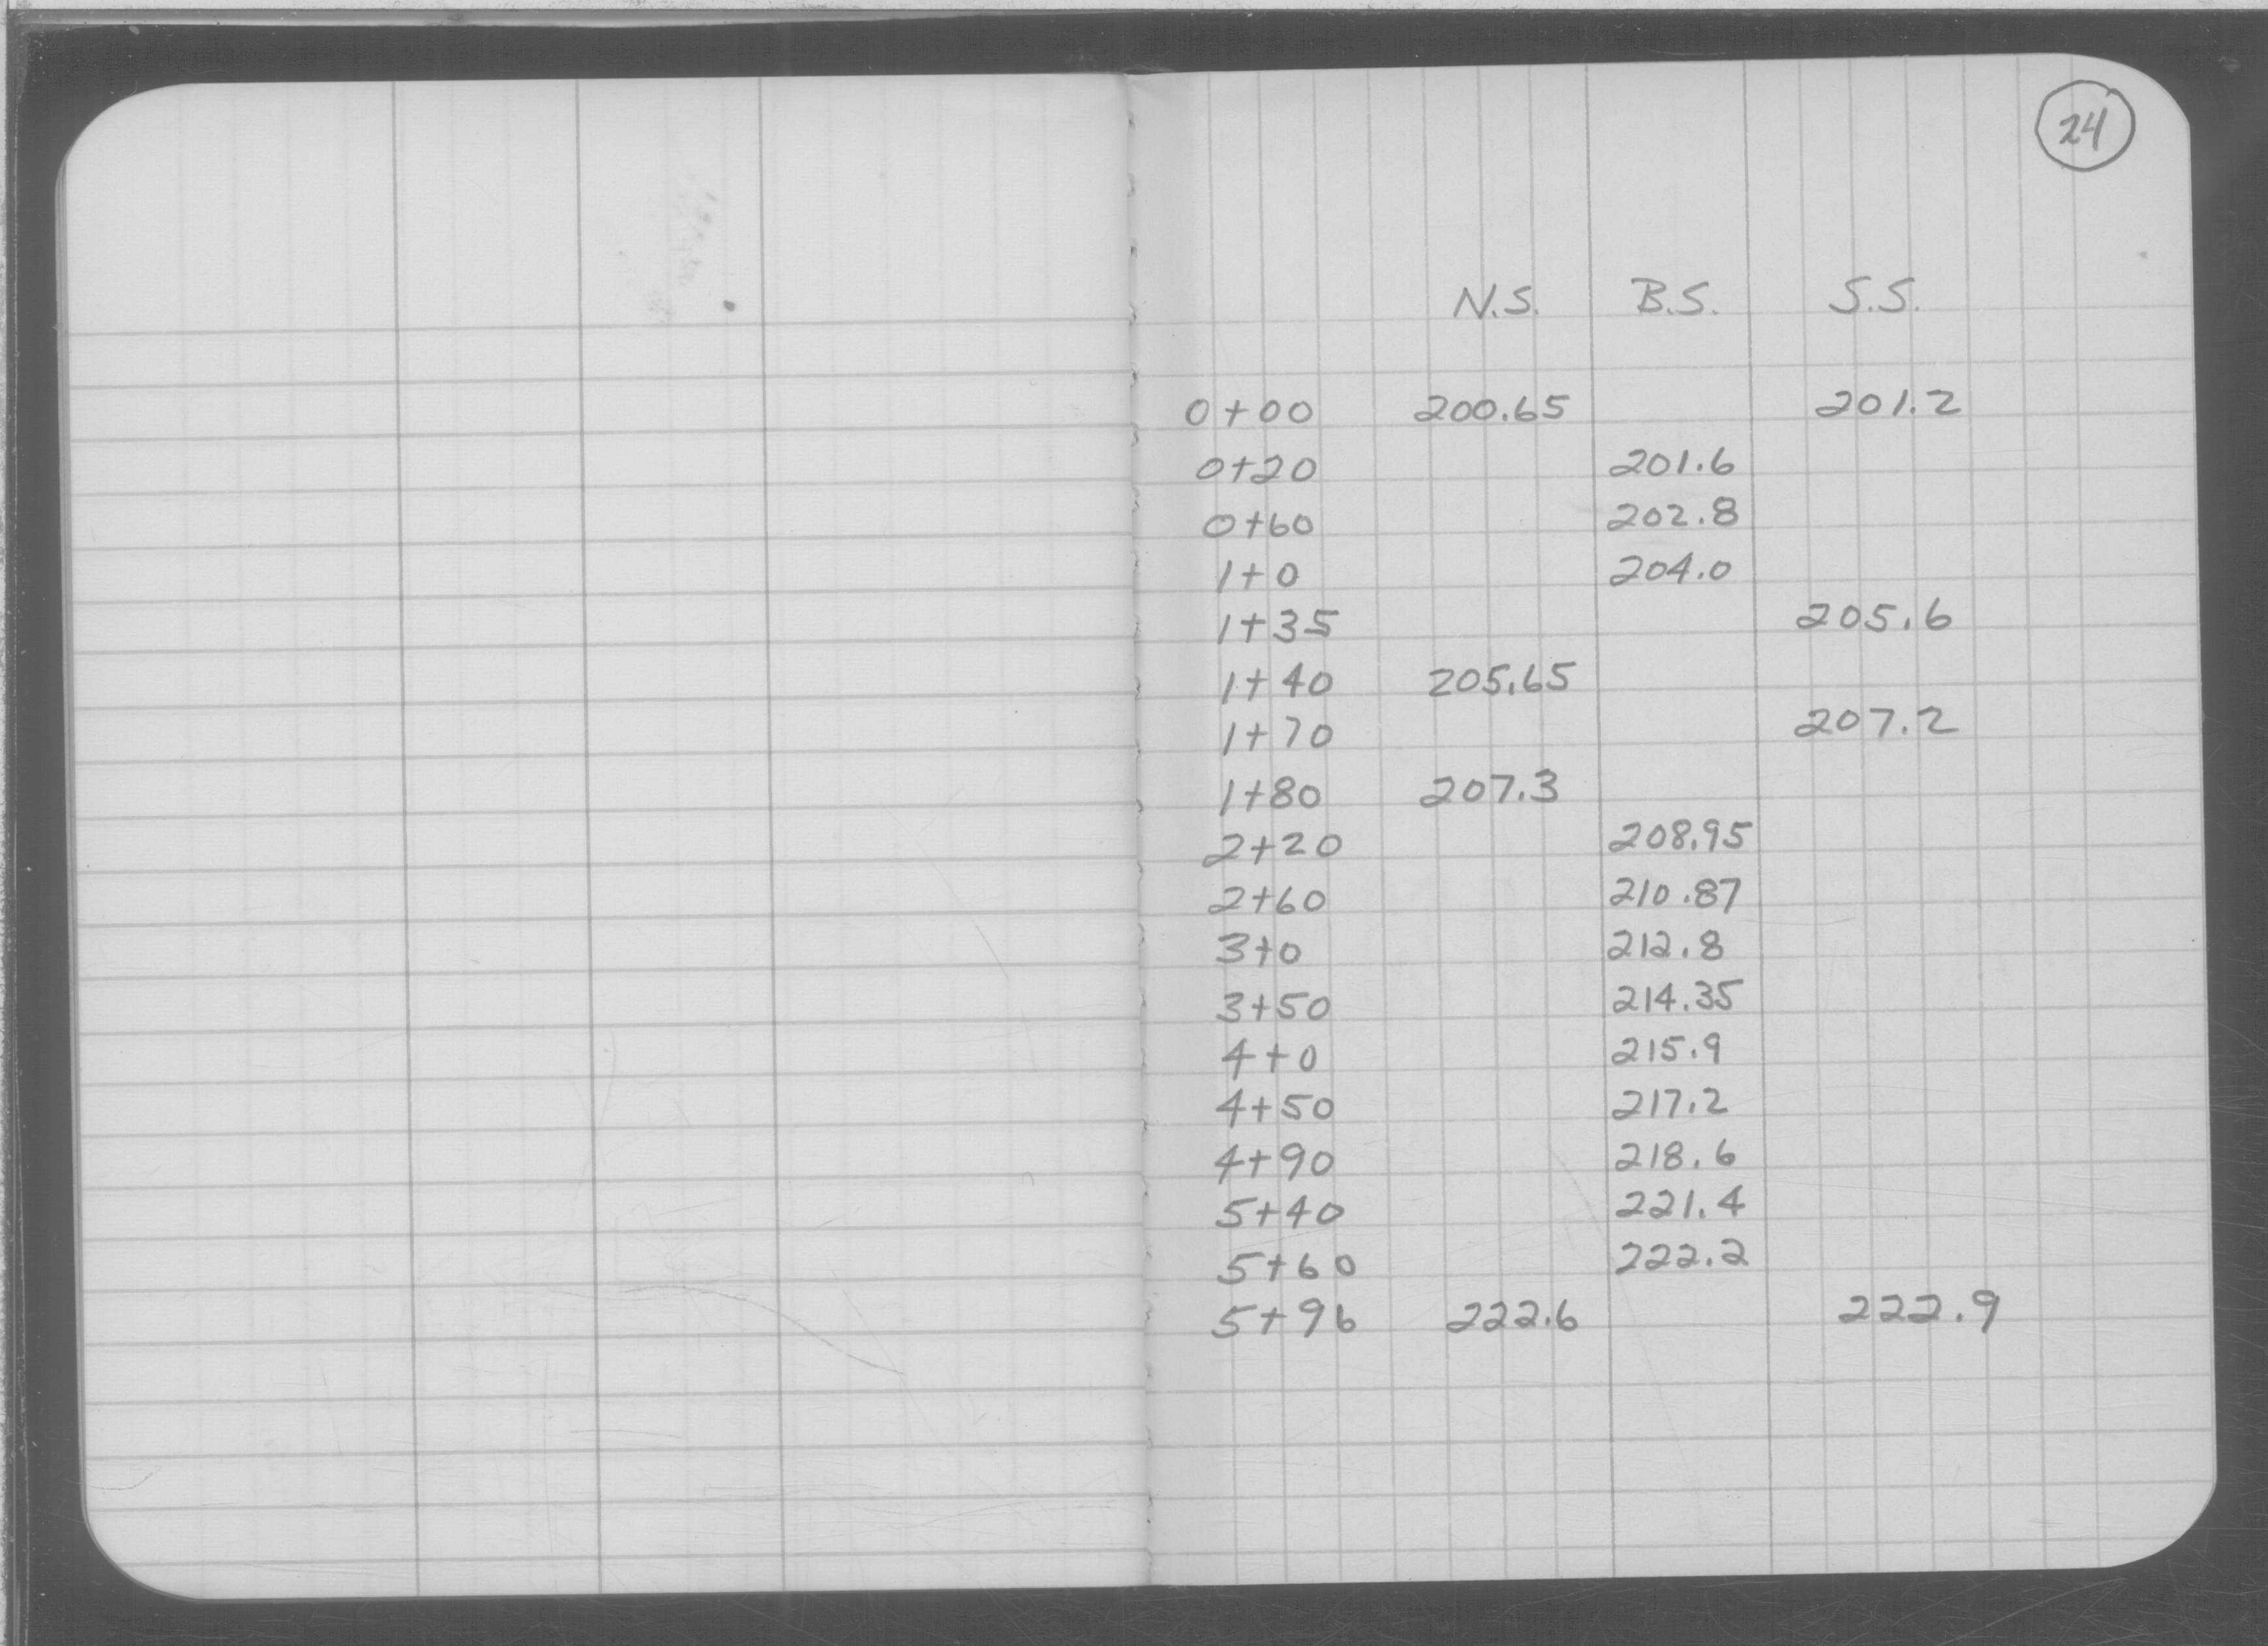 24
N.S. B.S. S.S.
0+00 200.65 201.2
0+20 201.6
0+60 202.8
1+0 204.0
1+35 205.6
1+40 205.65
1+70 207.2
1+80 207.3
2+20 208.95
2+60 210.87
3+0 212.8
3+50 214.35
4+0 215.9
4+50 217.2
4+90 218.6
5+40 221.4
5+60 222.2
5+96 222.6 222.9